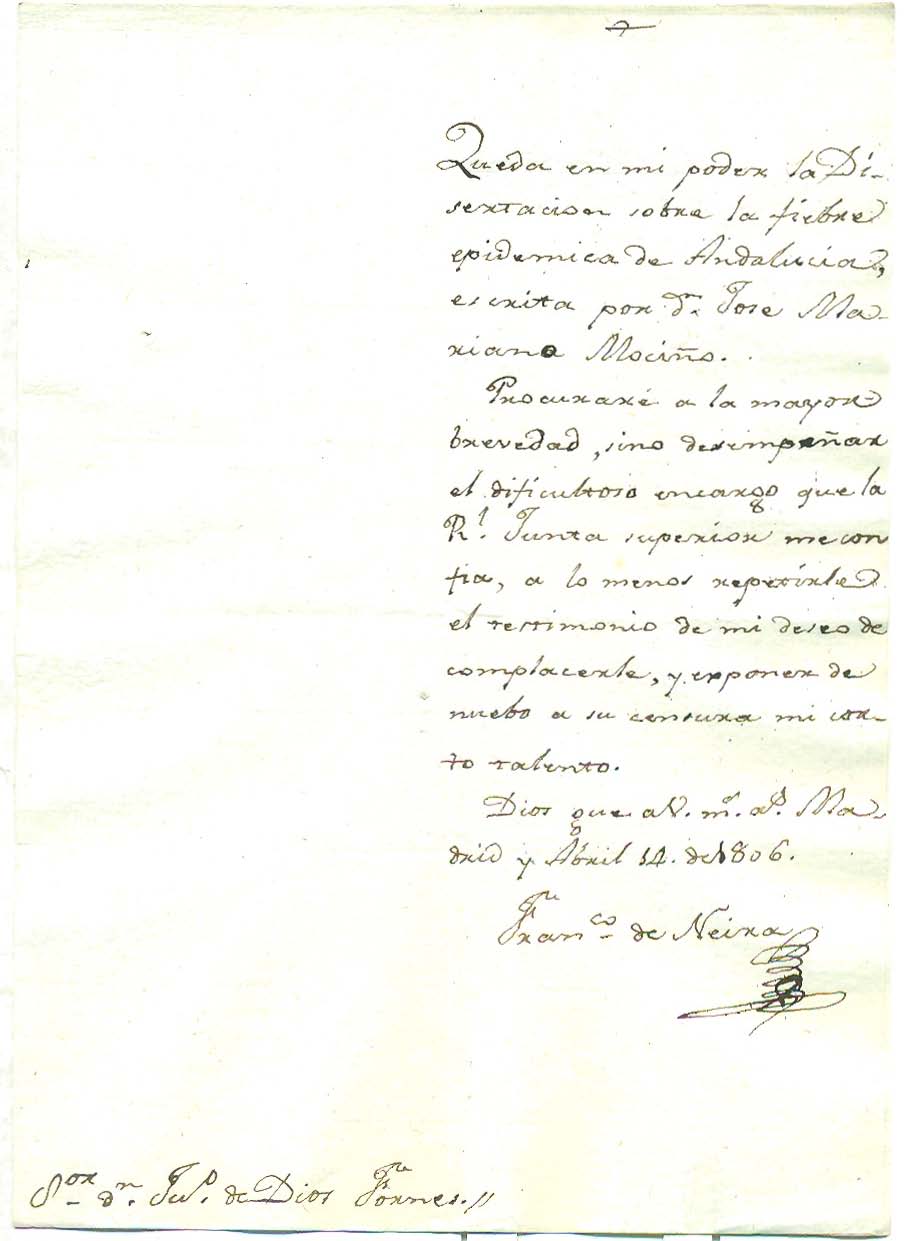 Queda en mi poder la Di-
sertacion sobre la fiebre
epidemica de Andalucia,
escrita por dn. Jose Ma-
riano Mociño.
Procuraré a la mayor
brevedad, sino desempeñar
el dificultoso encargo que la
Rl. Junta superior me con
fia, a lo menos repetirle
el testimonio de mi deseo de
complacerle, y exponer de
nuebo a su censura mi cor-
to talento.
Dios gue a V. ms. as. Ma-
drid y Abril 14. de 1806.
Franco de Neira
Sor dn. Jun. de Dios Fornes.//